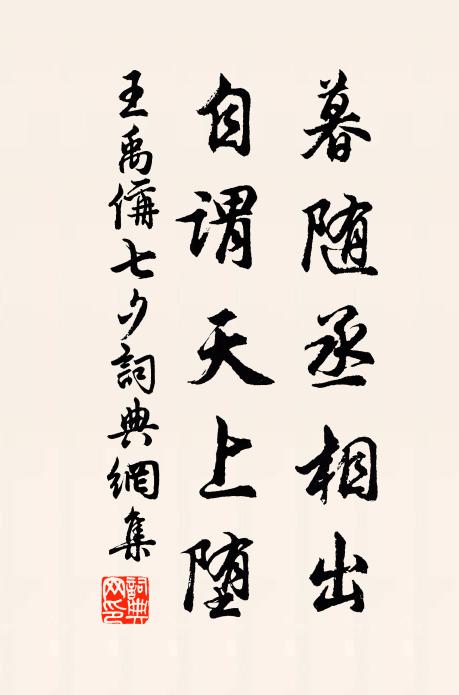 暮随丞相出
自谓天上堕
王禹偁七夕詞典網集
詞典網印